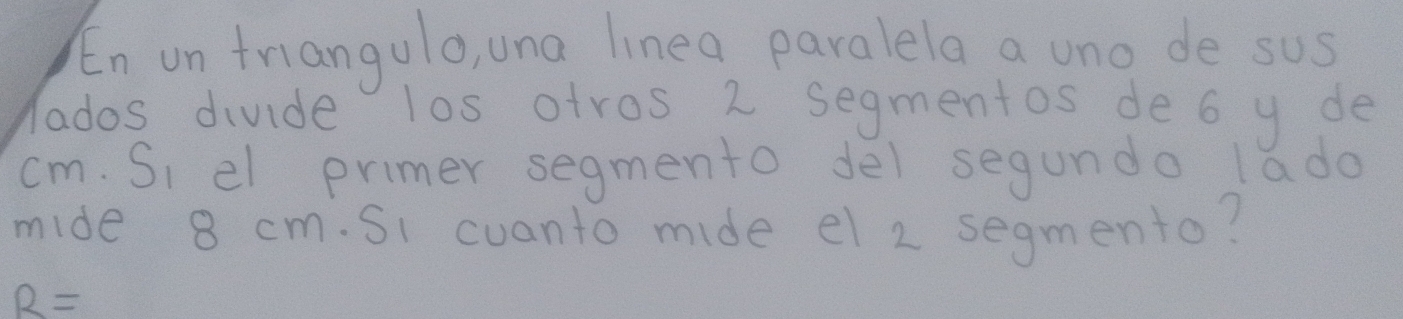 En un triangulo, una linea paralela a uno de sus
lados divide los otros 2 segmentos de 6 y de
cm. Si el primer segmento del segundo lado
mide 8 cm. Si cuanto mide el 2 segmento?
R=